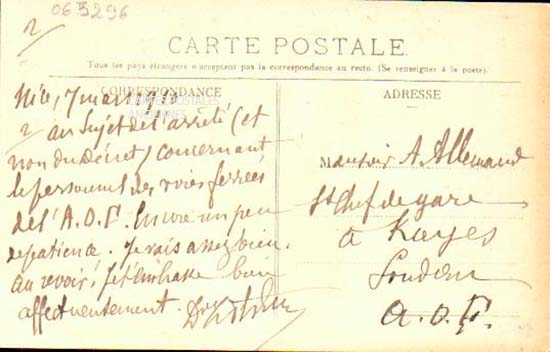 063296
2/
CARTE POSTALE
Tous les pays étrangers n'acceptent pas la correspondance au recto. (Se renseigner à la poste).
CORRESPONDANCE
CARTES POSTALES
ANCIENNES
Nice, 7 mars
2/ au sujet de l'arrêté (et
non du Décret) concernant
le personnel des voies ferrées
de l'A.O.F. Encore un peu
de patience. Je vais assez bien.
au revoir, je t'embrasse bien
affectueusement.
ADRESSE
Monsieur A. Allemand
s/ Chef de gare
à Kayes
Soudan
A.O.F.